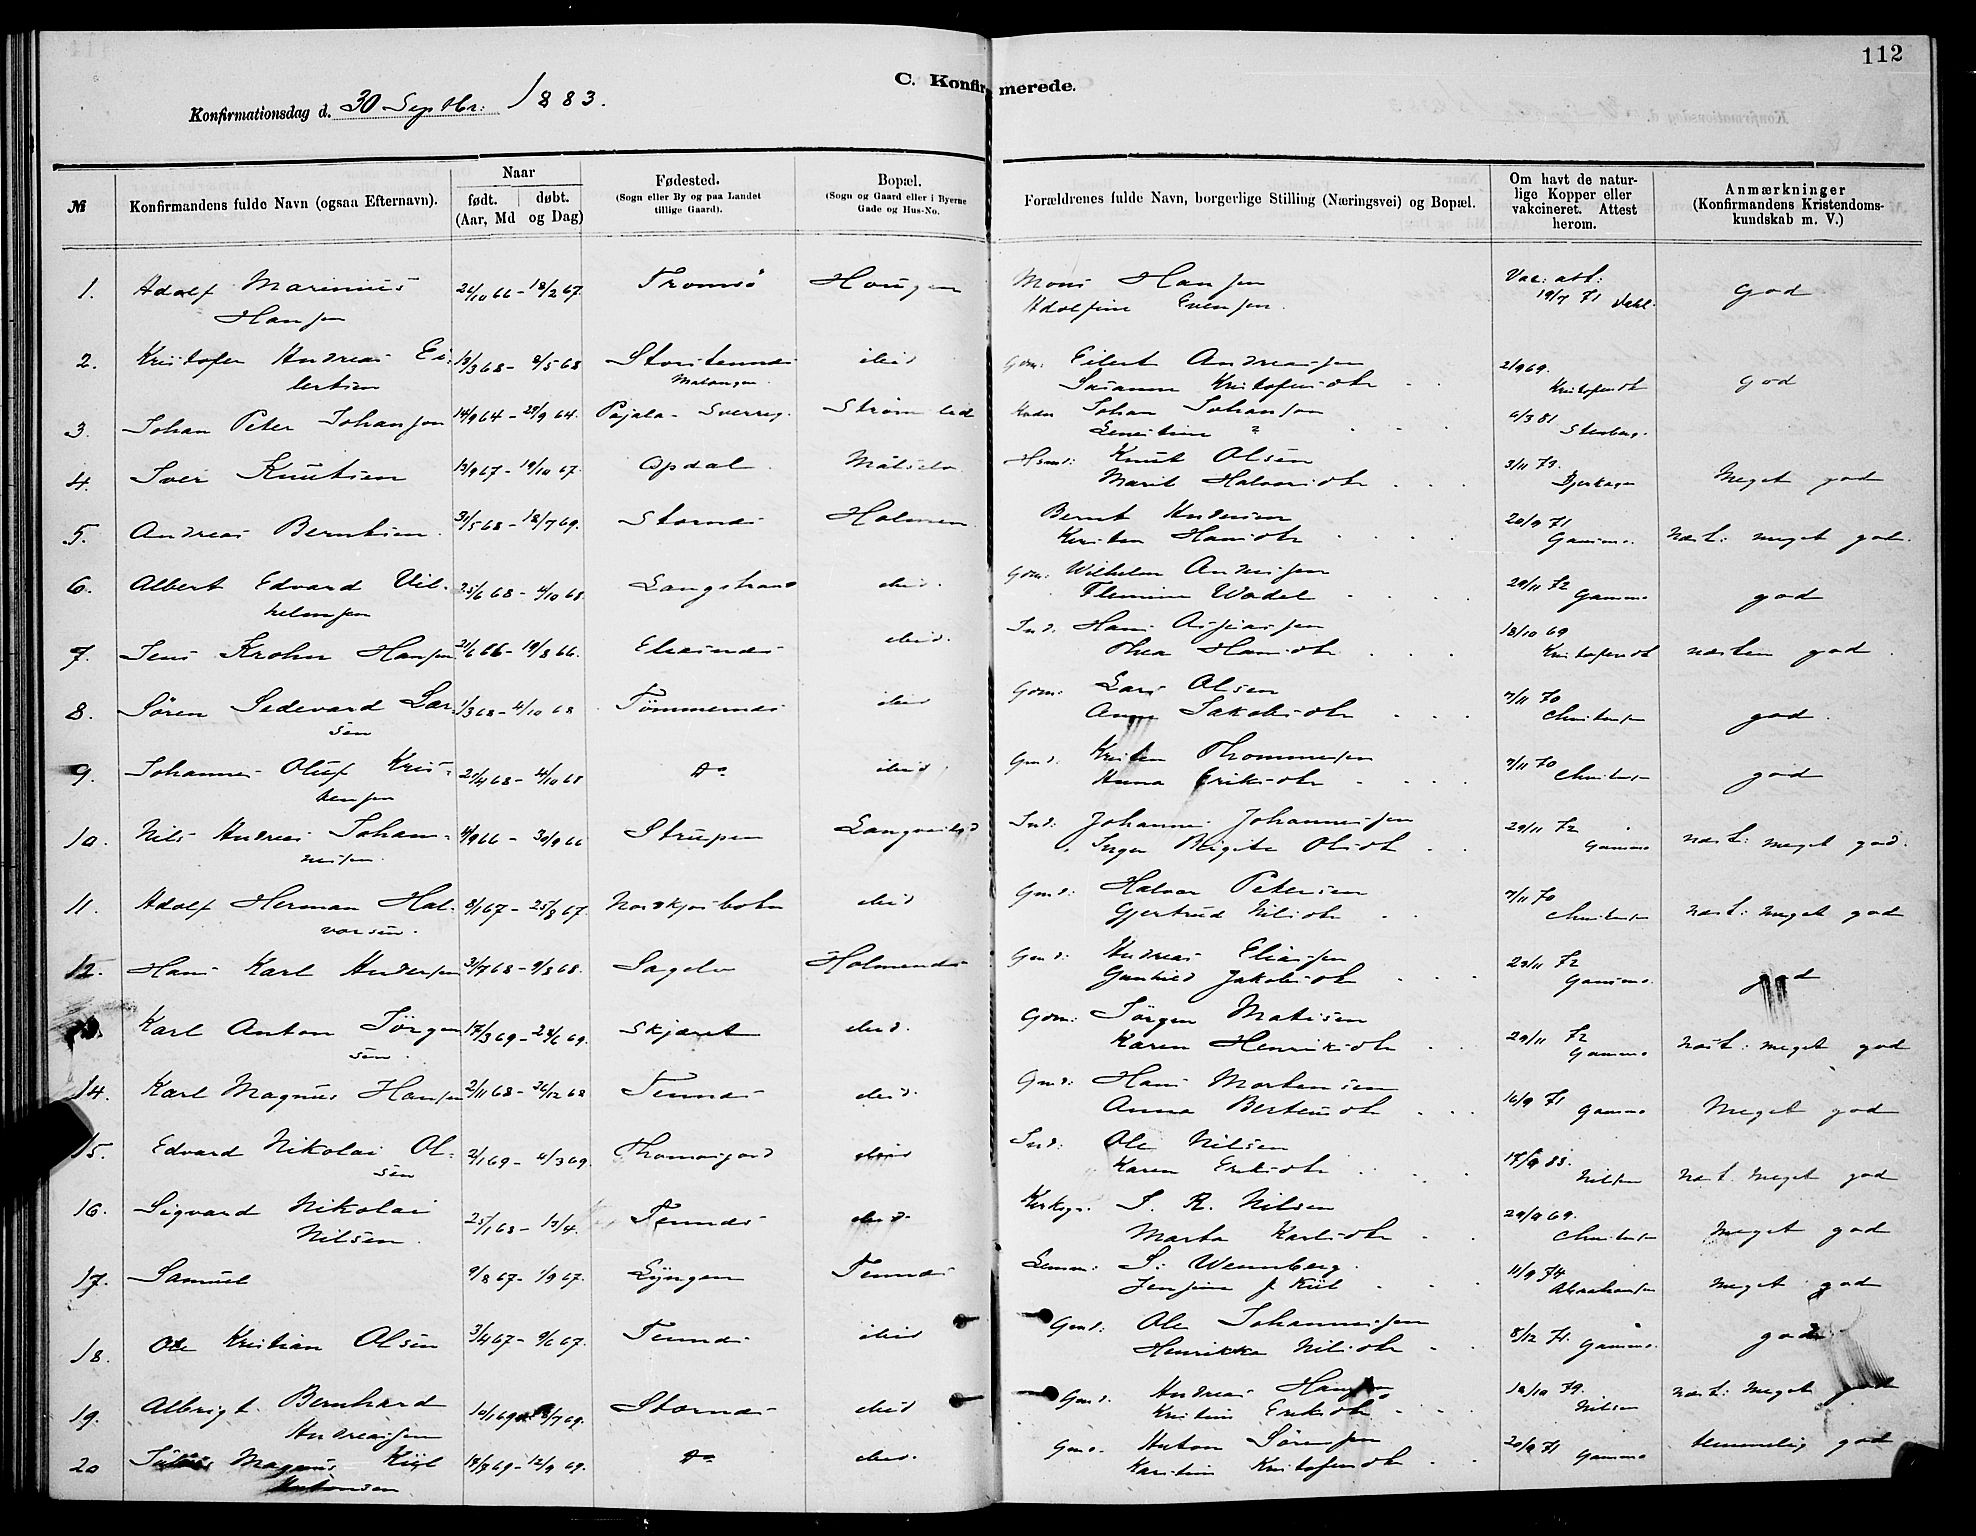 112
C. Konfirmerede.
Konfirmationsdag d. 30 Septbr: 1883.
№
Konfirmandens fulde Navn (ogsaa Efternavn).
Naar
født. døbt.
(Aar, Md og Dag)
Fødested.
(Sogn eller By og paa Landet
tillige Gaard).
Bopæl.
(Sogn og Gaard eller i Byerne
Gade og Hus-No.
Forældrenes fulde Navn, borgerlige Stilling (Næringsvei) og Bopæl.
Om havt de natur-
lige Kopper eller
vakcineret. Attest
herom.
Anmærkninger
(Konfirmandens Kristendoms-
kundskab m. V.)
1. Adolf Marinius 26/10 66 - 18/2 67. Tromsö Haugen Mons Hansen Vac: att: god
Hansen Adolfine Evensen. 19/7 71
2. Kristofer Andreas Ei- 13/3 68 - 2/5 68 Storstennes ibid Gdm: Eilert Andreassen 2/9 69. god
lertsen Malangen. Susanna Kristofersdtr
3. Johan Peter Johansen 14/9 64 - 29/9 64. Pajala - Sverrig. Johan Johansson 6/3 81
Stenberg.
4. Iver Knutsen 13/9 67 - 19/10 67. Opdal Målselv Knut Olsen 3/11 79. Meget god
Marit Halvorsdtr
5. Andreas Berntsen. 31/5 68 - 18/7 69. Stornes Holmen Bernt Andersen 20/9 71 næst: meget god.
Kirsten Hansdtr
6. Albert Edvard Vil- 25/6 68 - 4/10 68. Langstrand ibid. Gdm: Wilhelm Andersen 29/11 72 god
helmsen Wadel
7. Jens Krohn Hansen 21/6 66 - 19/8 66. ibid. Ind. Hans 18/10 69 næsten god.
Thea Hansdtr
8. Sören Sedevard Lar- 1/3 68 - 4/10 68 Tömmernes ibid Gdm: Lars Olsen 7/11 70 god.
sen Anna Jakobsdtr Christensen
9. Johannes Oluf Kris- 21/4 68 - 4/10 68 Do ibid. Gmd. Kristen Thommesen 7/11 70 god
tensen Anna Eriksdtr Christensen
10. Nils Andreas Johan- 4/9 66 - 30/9 66 Strupen Ind: Johannes Johannessen 29/11 72 næst: meget god.
nessen. Inger Birgite Olsdtr
11. Adolf Herman Hal- 8/1 67 - 25/8 67. Nordkjosbotn ibid Gmd: Halvor Petersen 7/11 70 næst: meget god
vorsen. Gjertrud Nilsdtr Christensen
12. Hans Karl Andersen 31/7 68 - 9/8 68. Sagelv Holmenes Gmd: Andreas Eliassen 29/11 72 god
Gunhild Jakobsdtr
13. Karl Anton Jörgen 17/3 69 - 24/6 69. Skjæret ibid. Gdm: Jörgen Matisen 29/11 72 næst: meget god
sen. Karen Henriksdtr
14. Karl Magnus Hansen 2/11 68 - 26/12 68 Tennes ibid. Gmd: Hans Mortensen 16/9 71 Meget god
Anna Berteusdtr
15. Edvard Nikolai Ol- 2/1 69 - 4/3 69. Thomasjord ibid Ind: Ole Nilsen 17/9 83. næst. meget god
sen Karen Eriksdtr Nilsen
16. Sigvard Nikolai 25/1 68 - 13/4. Tennes ibid. Kirkesgr. I. R. Nilsen 29/9 69. meget god
Nilsen. Marta Karlsdtr Christensen
17. Samuel 9/8 67 - 1/9 67. Lyngen Tennes Lensm: S: Wennberg. 11/9 74 meget god
Jensine f. Kiil Abrahamsen
18. Ole Kristian Olsen 3/4 67 - 9/6 67. Tennes ibid Gmd: Ole Johannessen 8/12 71. god
Henrikka Nilsdtr
19. Albrigt Bernhard 10/1 69 - 18/7 69. Stornes ibid Gmd. Andreas Hansen 18/10 79. næst: meget god
Andreassen Kristine Eriksdtr Nilsen
20 Julius Magnus Kiil 18/7 69 - 12/9 69. Do ibid. Gmd. Anton Sörensen 20/9 71 temmelig god
Antonsen Karstine Kristofersdtr